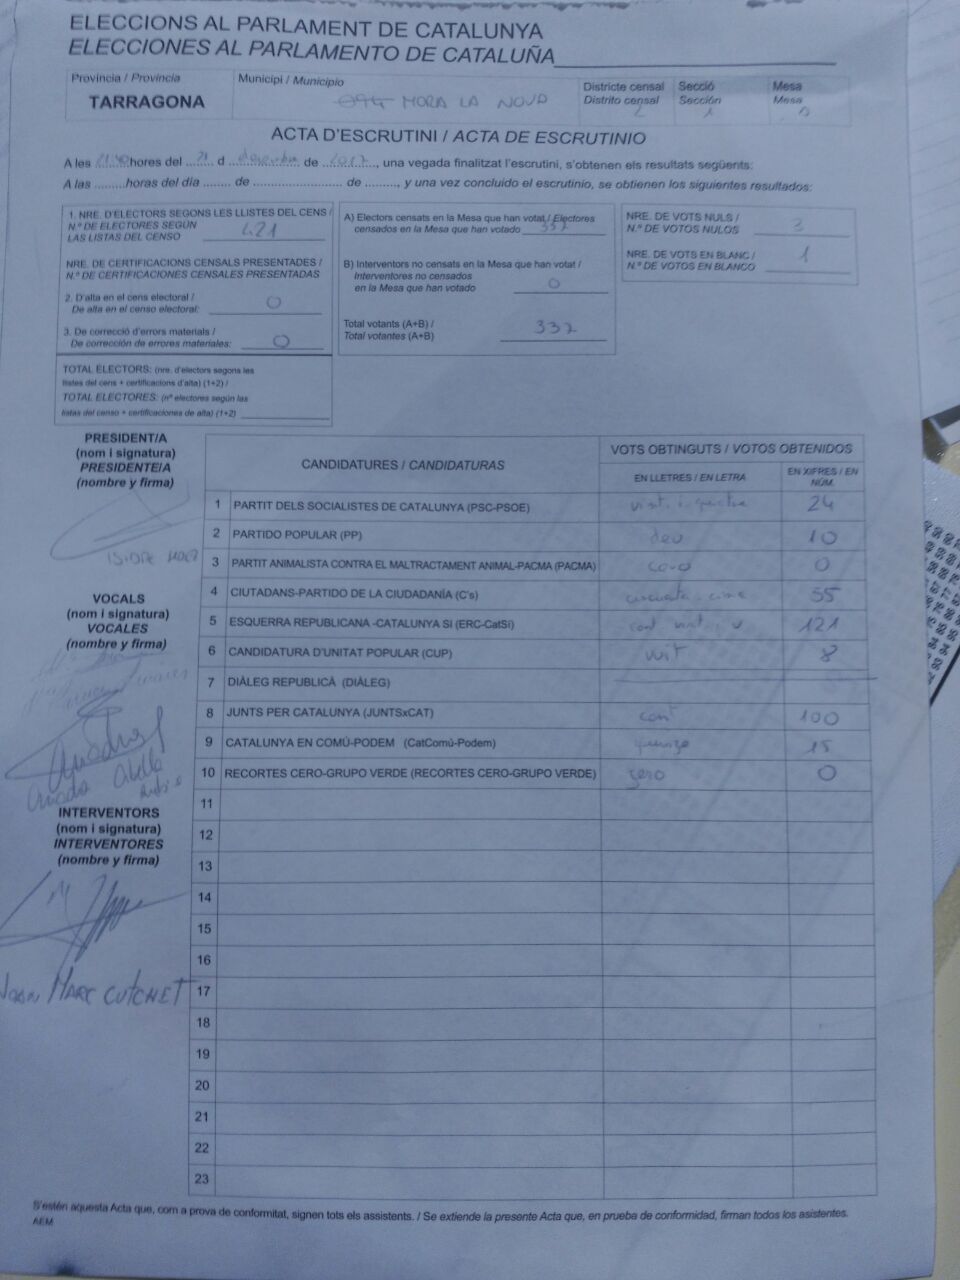 ELECCIONS AL PARLAMENT DE CATALUNYA
ELECCIONES AL PARLAMENTO DE CATALUÑA
Província / Provincia
TARRAGONA
Municipi / Municipio
094 MORA LA NOVA
Districte censal
Distrito censal
2
Secció
Sección
1
Mesa
Mesa
ACTA D'ESCRUTINI / ACTA DE ESCRUTINIO
A les ........ hores del 21 d desembre de 2017, una vegada finalitzat l'escrutini, s'obtenen els resultats següents:
A las .........horas del día ........ de ......................... de ........., y una vez concluido el escrutinio, se obtienen los siguientes resultados:
1. NRE. D'ELECTORS SEGONS LES LLISTES DEL CENS /
N.º DE ELECTORES SEGÚN
LAS LISTAS DEL CENSO 421
NRE. DE CERTIFICACIONS CENSALS PRESENTADES /
N.º DE CERTIFICACIONES CENSALES PRESENTADAS
2. D'alta en el cens electoral /
De alta en el censo electoral: 0
3. De correcció d'errors materials /
De corrección de errores materiales: 0
TOTAL ELECTORS: (nre. d'electors segons les
llistes del cens + certificacions d'alta) (1+2) /
TOTAL ELECTORES: (nº electores según las
listas del censo + certificaciones de alta) (1+2)
A) Electors censats en la Mesa que han votat / Electores
censados en la Mesa que han votado 337
B) Interventors no censats en la Mesa que han votat /
Interventores no censados
en la Mesa que han votado 0
Total votants (A+B) /
Total votantes (A+B) 337
NRE. DE VOTS NULS /
N.º DE VOTOS NULOS 3
NRE. DE VOTS EN BLANC /
N.º DE VOTOS EN BLANCO 1
PRESIDENT/A
(nom i signatura)
PRESIDENTE/A
(nombre y firma)
VOCALS
(nom i signatura)
VOCALES
(nombre y firma)
INTERVENTORS
(nom i signatura)
INTERVENTORES
(nombre y firma)
JOAN MARC CUTCHET
CANDIDATURES / CANDIDATURAS
VOTS OBTINGUTS / VOTOS OBTENIDOS
EN LLETRES / EN LETRA
EN XIFRES / EN NÚM.
1 PARTIT DELS SOCIALISTES DE CATALUNYA (PSC-PSOE) vint-i-quatre 24
2 PARTIDO POPULAR (PP) deu 10
3 PARTIT ANIMALISTA CONTRA EL MALTRACTAMENT ANIMAL-PACMA (PACMA) 0
4 CIUTADANS-PARTIDO DE LA CIUDADANÍA (C's) 55
5 ESQUERRA REPUBLICANA -CATALUNYA SI (ERC-CatSí) cent vint-i-u 121
6 CANDIDATURA D'UNITAT POPULAR (CUP) vuit 8
7 DIÀLEG REPUBLICÀ (DIÀLEG)
8 JUNTS PER CATALUNYA (JUNTSxCAT) cent 100
9 CATALUNYA EN COMÚ-PODEM (CatComú-Podem) quinze 15
10 RECORTES CERO-GRUPO VERDE (RECORTES CERO-GRUPO VERDE) zero 0
11
12
13
14
15
16
17
18
19
20
21
22
23
S'estén aquesta Acta que, com a prova de conformitat, signen tots els assistents. / Se extiende la presente Acta que, en prueba de conformidad, firman todos los asistentes.
AEM